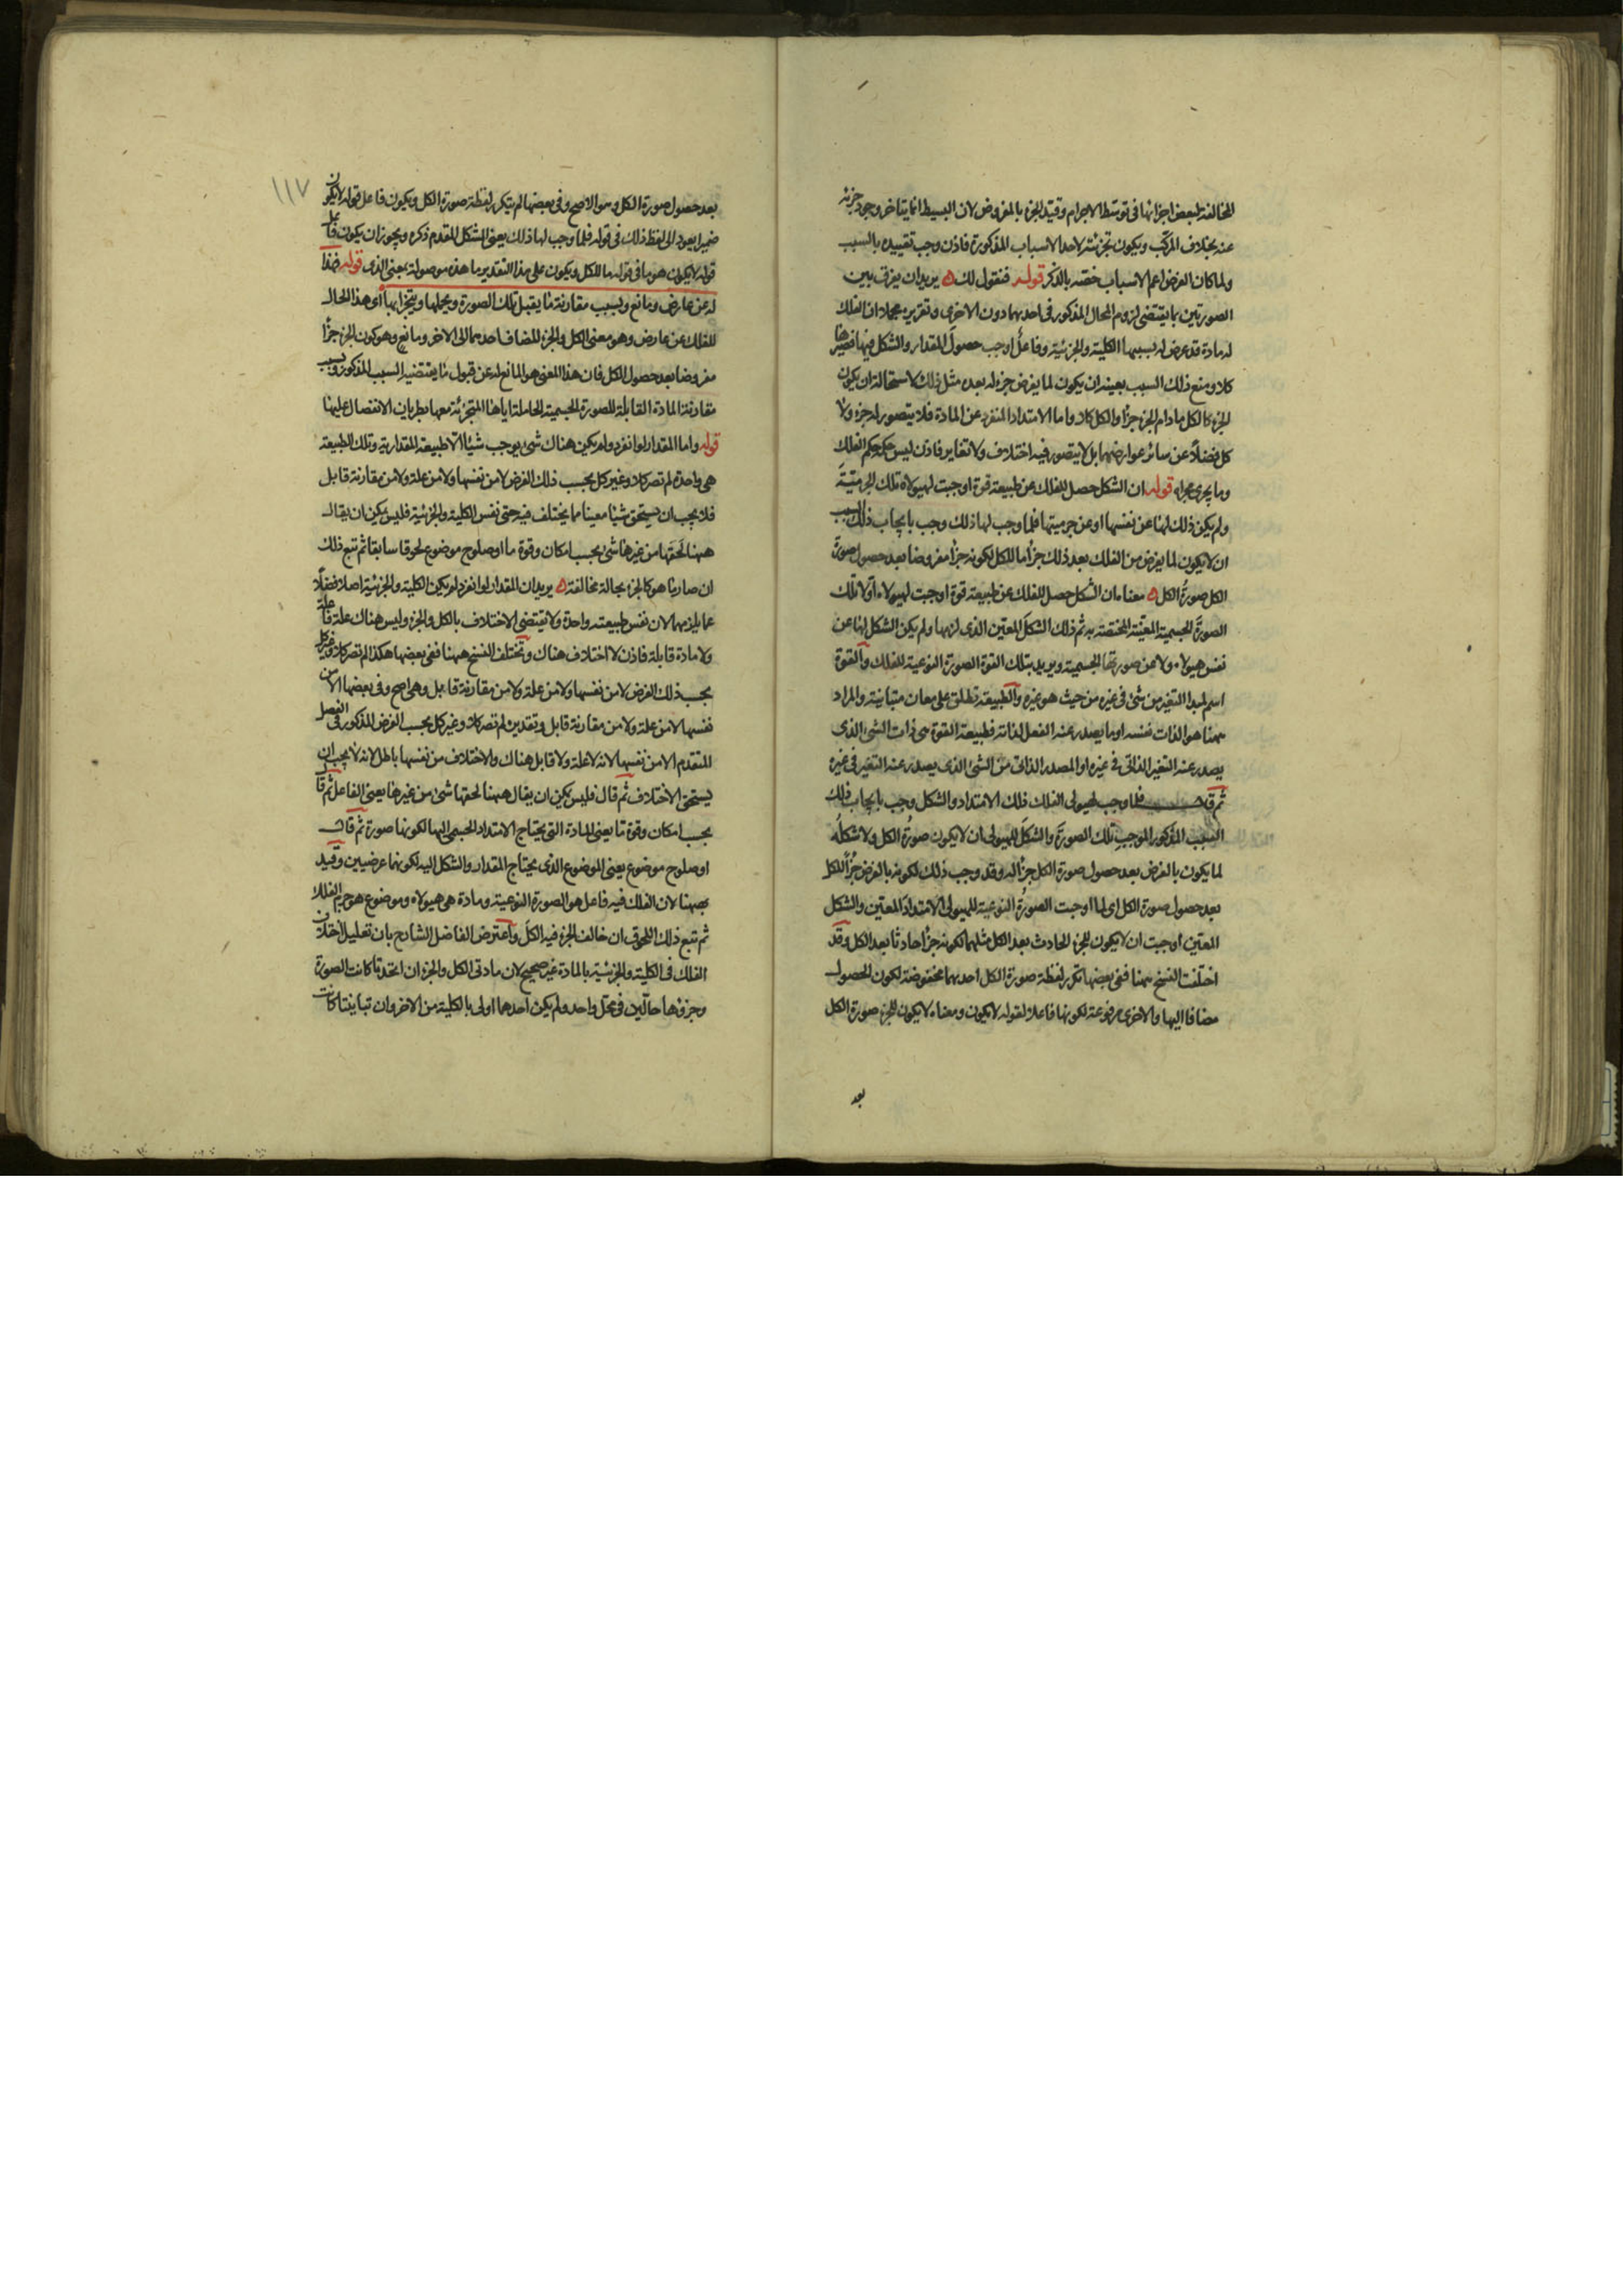 المخالفة لبعض اجزائها فى توسط الاجرام وقيد الجزء بالمفروض لان البسيط انما يتاخر وجود جزئه
عنه بخلاف المركب ويكون تجزئته لاحد الاسباب المذكورة فاذن وجب تقييده بالسبب
ولما كان الفرض اعم الاسباب خصه بالذكر قوله فنقول لك ه يريد ان يفرق بين
الصورتين بما يقتضى لزوم المحال المذكور فى احدهما دون الاخرى وتقريره مجملا ان الفلك
له مادة قد عرض له بسببها الكلية والجزئية وفاعل اوجب حصول المقدار والشكل فيها فصيرها
كلا ومنع ذلك السبب بعينه ان يكون لما يفرض جزء له بعده مثل ذلك لاستحالة ان يكون
الجزء كالكل مادام الجزء جزأ والكل كلا واما الامتداد المنفرد عن المادة فلا يتصور له جزء ولا
كل فضلا عن سائر عوارضهما بل لا يتصور فيه اختلاف ولا تغاير فاذن ليس حكمه حكم الفلك
وما يجرى مجراه قوله ان الشكل حصل للفلك عن طبيعة قوة اوجبت لهيولاه تلك الجرمية
ولم يكن ذلك لها عن نفسها او عن جرميتها فلما وجب لها ذلك وجب بايجاب ذلك السبب
ان لا يكون لما يفرض من الفلك بعد ذلك جزأ ما للكل لكونه جزأ مفروضا بعد حصول صورة
الكل صورة الكل ه معناه ان الشكل حصل للفلك عن طبيعة قوة اوجبت لهيولاه اولا تلك
الصورة الجسمية المعينة المختصة به ثم ذلك الشكل المعين الذى لزمها ولم يكن الشكل لها عن
نفس هيولاه ولا عن صورتها الجسمية ويريد بتلك القوة الصورة النوعية للفلك والقوة
اسم لمبدا التغير من شئ فى غيره من حيث هو غيره والطبيعة تطلق على معان متباينة والمراد
ههنا هو الذات نفسه او ما يصدر عنه الفعل لذاته فطبيعة القوة هى ذات الشئ الذى
يصدر عنه التغير الذاتى فى غيره او المصدر الذاتى من الشئ الذى يصدر عنه التغير فى غيره
ثم قال فلما وجب لهيولى الفلك ذلك الامتداد والشكل وجب بايجاب ذلك
السبب المذكور الموجب تلك الصورة والشكل للهيولى ان لا يكون صورة الكل ولا شكله
لما يكون بالفرض بعد حصول صورة الكل جزأ له وقد وجب ذلك لكونه بالفرض جزأ للكل
بعد حصول صورة الكل اى لما اوجبت الصورة النوعية للهيولى الامتداد المعين والشكل
المعين اوجبت ان لا يكون للجزء الحادث بعد الكل مثلهما لكونه جزأ حادثا بعد الكل وقد
اختلفت النسخ ههنا ففى بعضها تكرر لفظة صورة الكل احدهما مخفوضة لكون الحصول
مضافا اليها والاخرى مرفوعة لكونها فاعلا لقوله لا يكون ومعناه لا يكون للجزء صورة الكل
بعد
١١٧
بعد حصول صورة الكل وهو الاصح وفى بعضها لم يتكرر لفظة صورة الكل ويكون فاعل قوله لا يكون
ضميرا يعود الى لفظ ذلك فى قوله فلما وجب لها ذلك يعنى الشكل المقدم ذكره ويجوز ان يكون فاعل
قوله لا يكون هو ما فى قوله ما للكل ويكون على هذا التقدير ما هذه موصولة بمعنى الذى قوله فهذا
له عن عارض ومانع وبسبب مقارنة ما يقبل تلك الصورة ويحملها ويتجزأ بها اى هذا الحال
للفلك عن عارض وهو معنى الكل والجزء المضاف احدهما الى الاخر ومانع وهو كون الجزء جزأ
مفروضا بعد حصول الكل فان هذا المعنى هو المانع له عن قبول ما يقتضيه السبب المذكور وبسبب
مقارنة المادة القابلة للصورة الجسمية الحاملة اياها المتجزئة معها بطريان الانفصال عليها
قوله واما المقدار لو انفرد ولم يكن هناك شئ يوجب شيئا الا طبيعة المقدارية وتلك الطبيعة
هى واحدة لم تصر كلا وغير كل بحسب ذلك الفرض لا من نفسها ولا من علة ولا من مقارنة قابل
فلا يجب ان يستحق شيئا معينا مما يختلف فيه حتى نفس الكلية والجزئية فليس يمكن ان يقال
ههنا لحقها من غيرها شئ بحسب امكان وقوة ما او صلوح موضوع لحوقا سابقا ثم تبع ذلك
ان صار ما هو كالجزء بحالة مخالفة ه يريد ان المقدار لو انفرد لم يكن الكلية والجزئية اصلا فضلا
عما يلزمهما لان نفس طبيعته واحدة ولا يقتضى الاختلاف بالكل والجزء وليس هناك علة فاعلة
ولا مادة قابلة فاذن لا اختلاف هناك وتختلف النسخ ههنا ففى بعضها هكذا لم تصر كلا وغير كل
بحسب ذلك الفرض لا من نفسها ولا من علة ولا من مقارنة قابل وهى اصح وفى بعضها الا من
نفسها لا من علة ولا من مقارنة قابل وتقديره لم تصر كلا وغير كل بحسب الفرض المذكور فى الفصل
المتقدم الا من نفسها لانه لا علة ولا قابل هناك والاختلاف من نفسها باطل لانه لا يجب ان
يستحق الاختلاف ثم قال فليس يمكن ان يقال ههنا لحقها شئ من غيرها يعنى الفاعل ثم قال
بحسب امكان وقوة ما يعنى المادة التى يحتاج الامتداد الجسمى اليها لكونها صورة ثم قال
او صلوح موضوع يعنى الموضوع الذى يحتاج المقدار والشكل اليه لكونهما عرضيين وقيد
بههنا لان الفلك فيه فاعل هو الصورة النوعية ومادة هى هيولاه وموضوع هو جرم الفلك
ثم تبع ذلك اللحوق ان خالف الجزء فيه الكل واعترض الفاضل الشارح بان تعليل اختلاف
الفلك فى الكلية والجزئية بالمادة غير صحيح لان مادتى الكل والجزء ان اتحدتا كانت الصورة
وجزؤها حالين فى محل واحد ولم يكن احدهما اولى بالكلية من الاخر وان تباينتا كانت